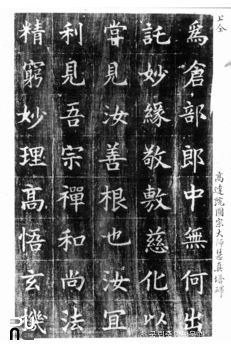 上仝
高達院國宗大師慧真塔碑
為倉部郎中無何出
託妙緣敬敷慈化以
當見汝善根也汝宜
利見吾宗禪和尚法
精窮妙理高悟玄機